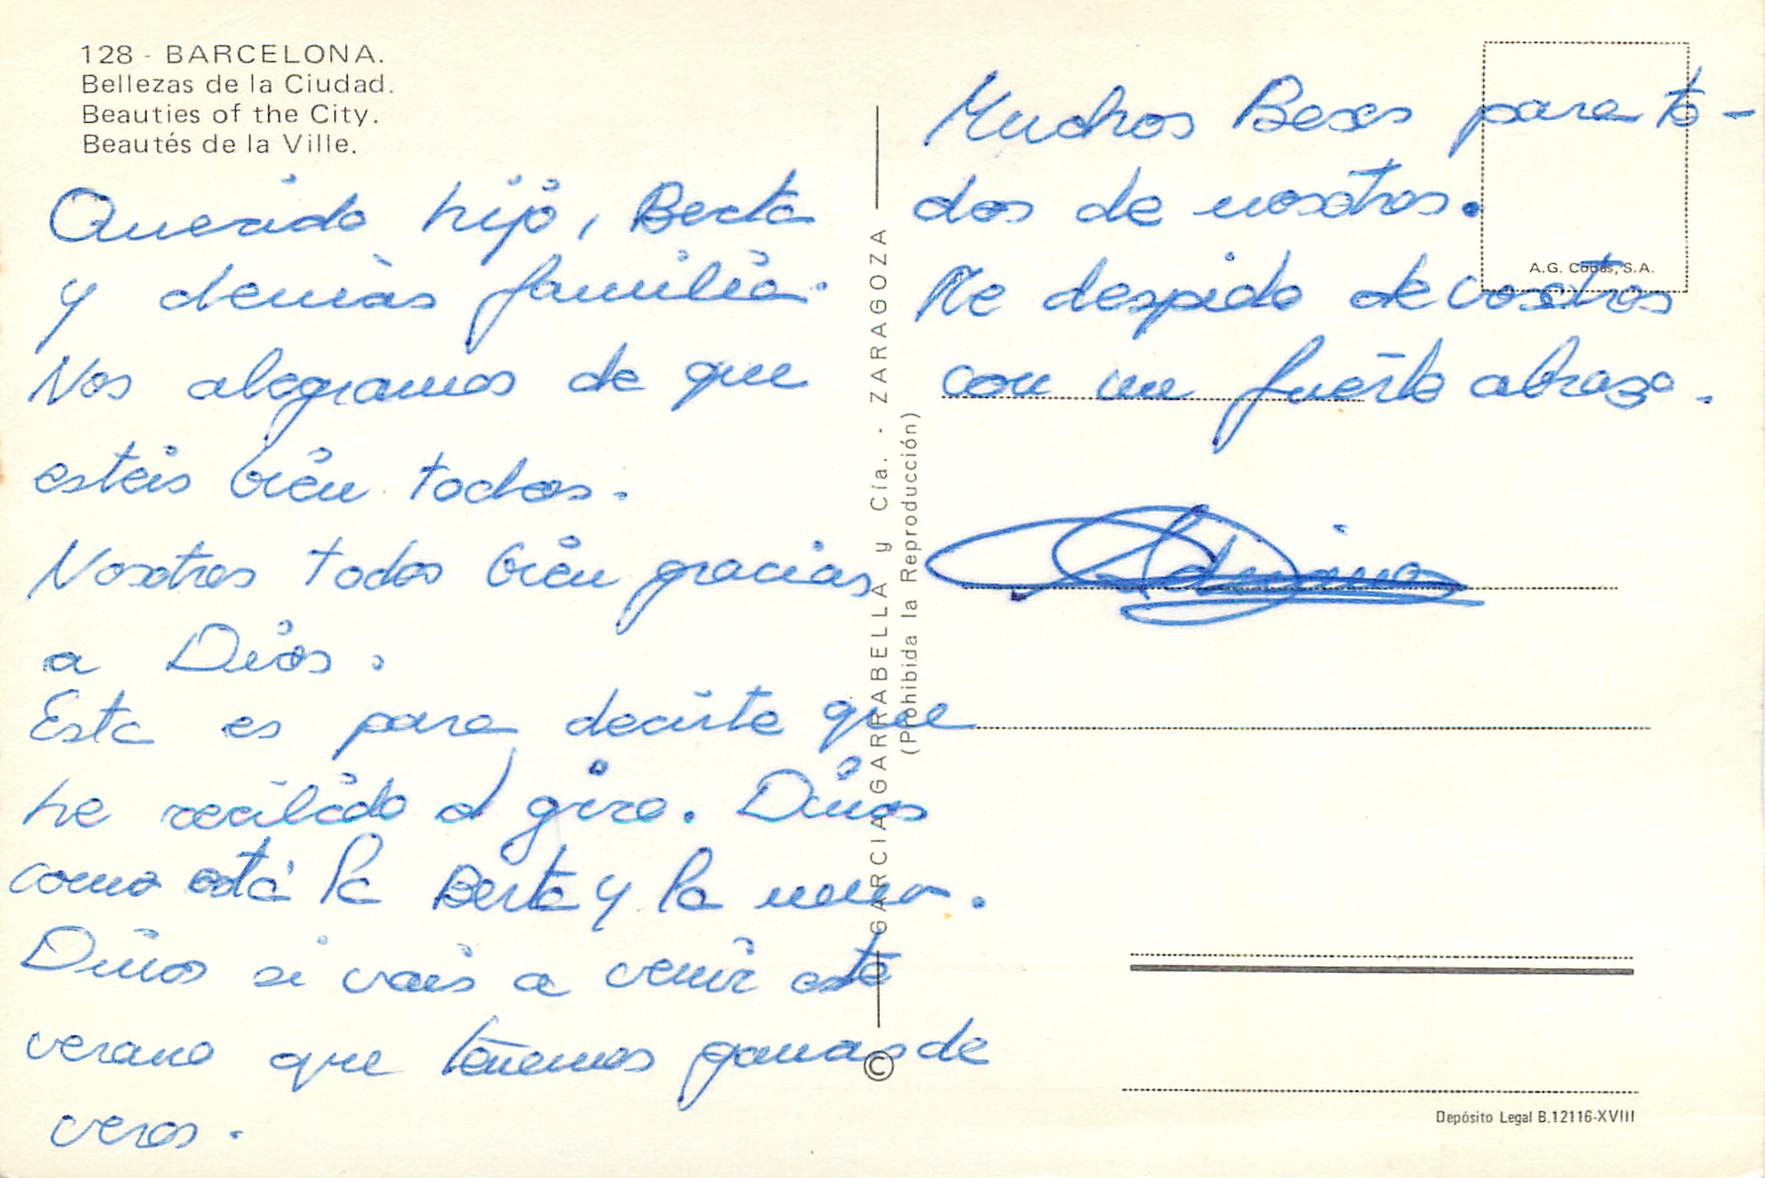 128 - BARCELONA.
Bellezas de la Ciudad.
Beauties of the City.
Beautés de la Ville.
Querido hijo, Berta
y demàs familia.
Nos alegramos de que
esteis bien todos.
Nosotros todos bien gracias
a Dios.
Esta es para decirte que
he recibido el giro. Dinos
como está la Berta y la nena.
Dinos si vais a venir este
verano que tenemos ganas de
veros.
GARCIA GARRABELLA y Cía. - ZARAGOZA
(Prohibida la Reproducción)
©
Muchos Besos para to-
dos de nosotros.
A.G. Cobas, S.A.
Me despido de vosotros
con un fuerte abrazo.
Depósito Legal B.12116-XVIII